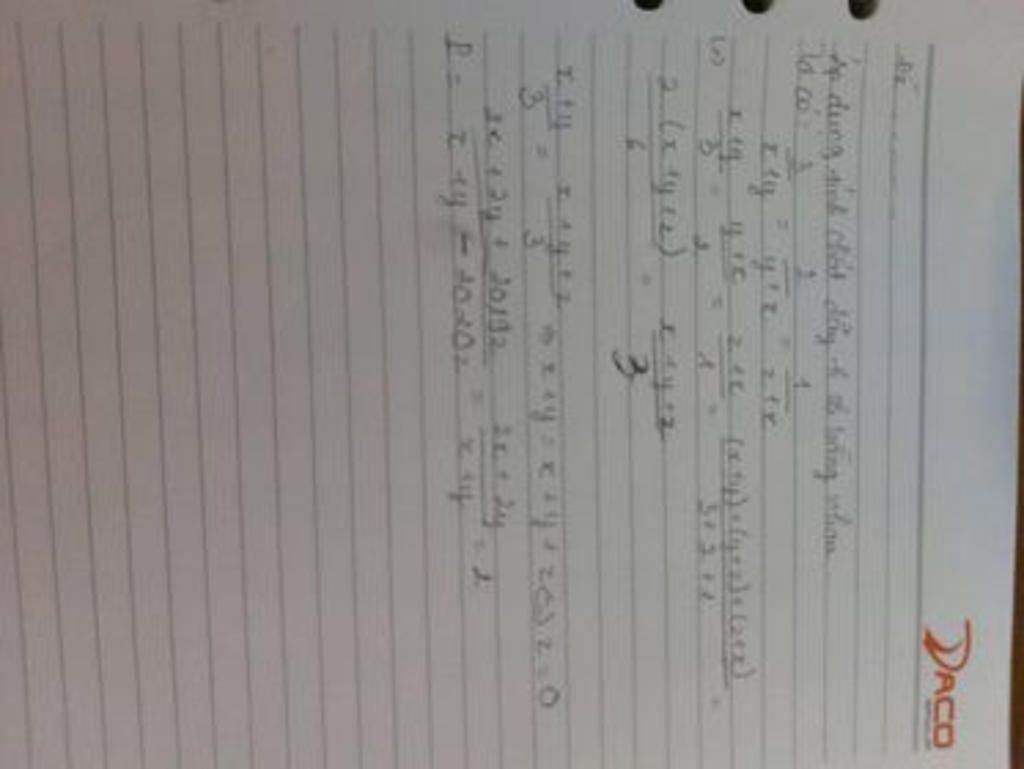 DACO
Áp dụng tính chất dãy tỉ số bằng nhau
ta có:
3/(x+y) = 2/(y+z) = 1/(z+x)
(=) (x+y)/3 = (y+z)/2 = (z+x)/1 = ((x+y)+(y+z)+(z+x))/(3+2+1) =
2(x+y+z)/6 = (x+y+z)/3
(x+y)/3 = (x+y+z)/3 => x+y = x+y+z <=> z = 0
P = (2x+2y+2019z)/(x+y-2020z) = (2x+2y)/(x+y) = 2